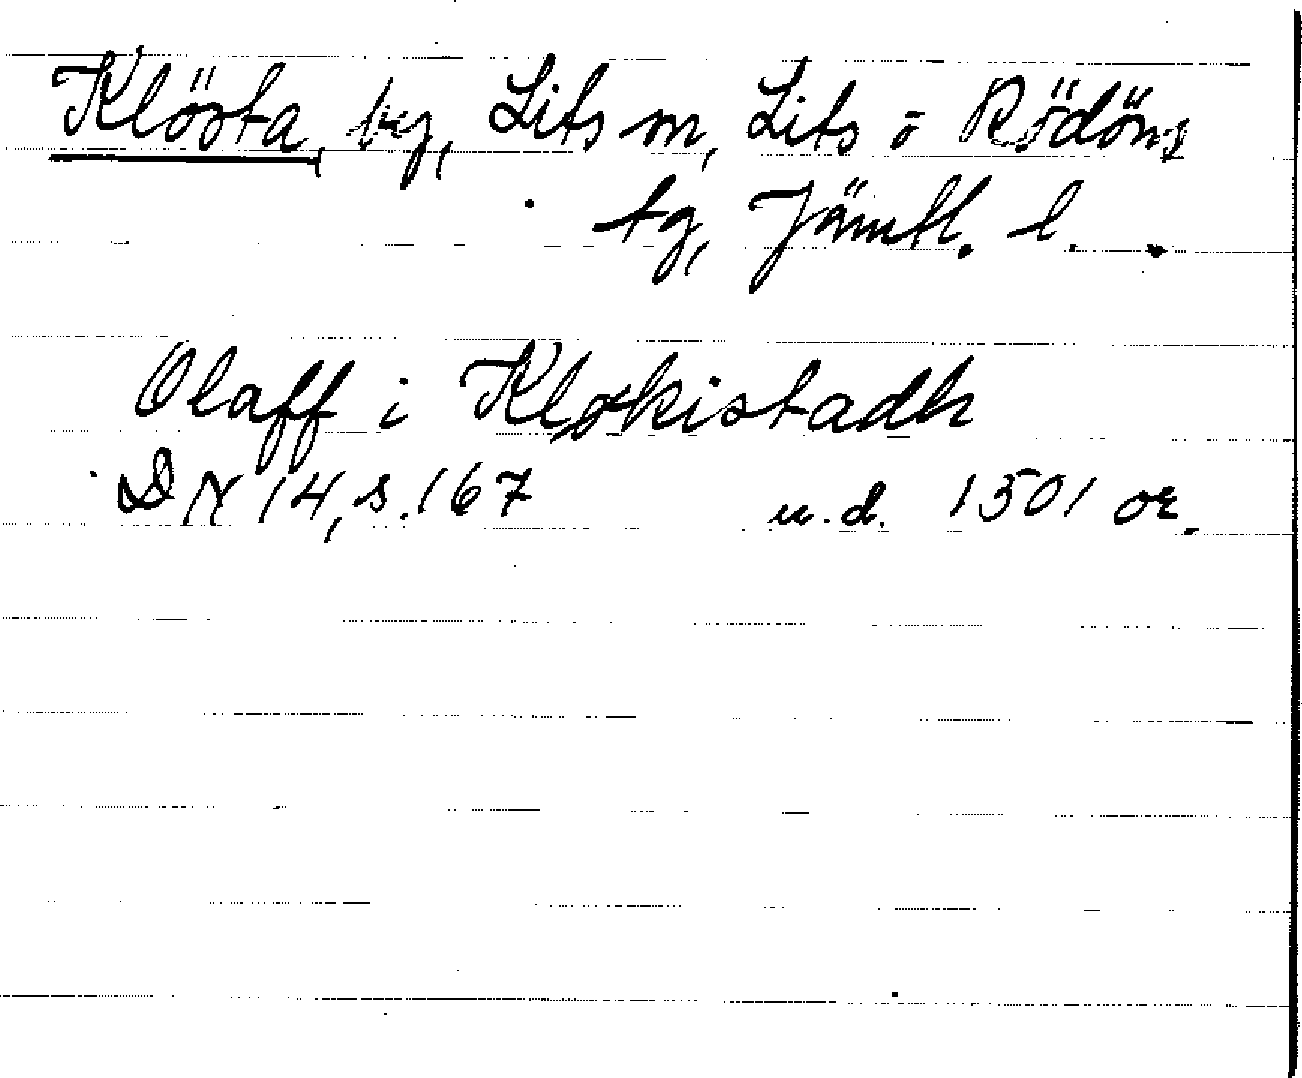 Klösta, by, Lits sn, Lits o Rödöns
tg, Jämtl. l.
Olaff i Kløkistadh
DN 14, s. 167 u.d. 1501 or.